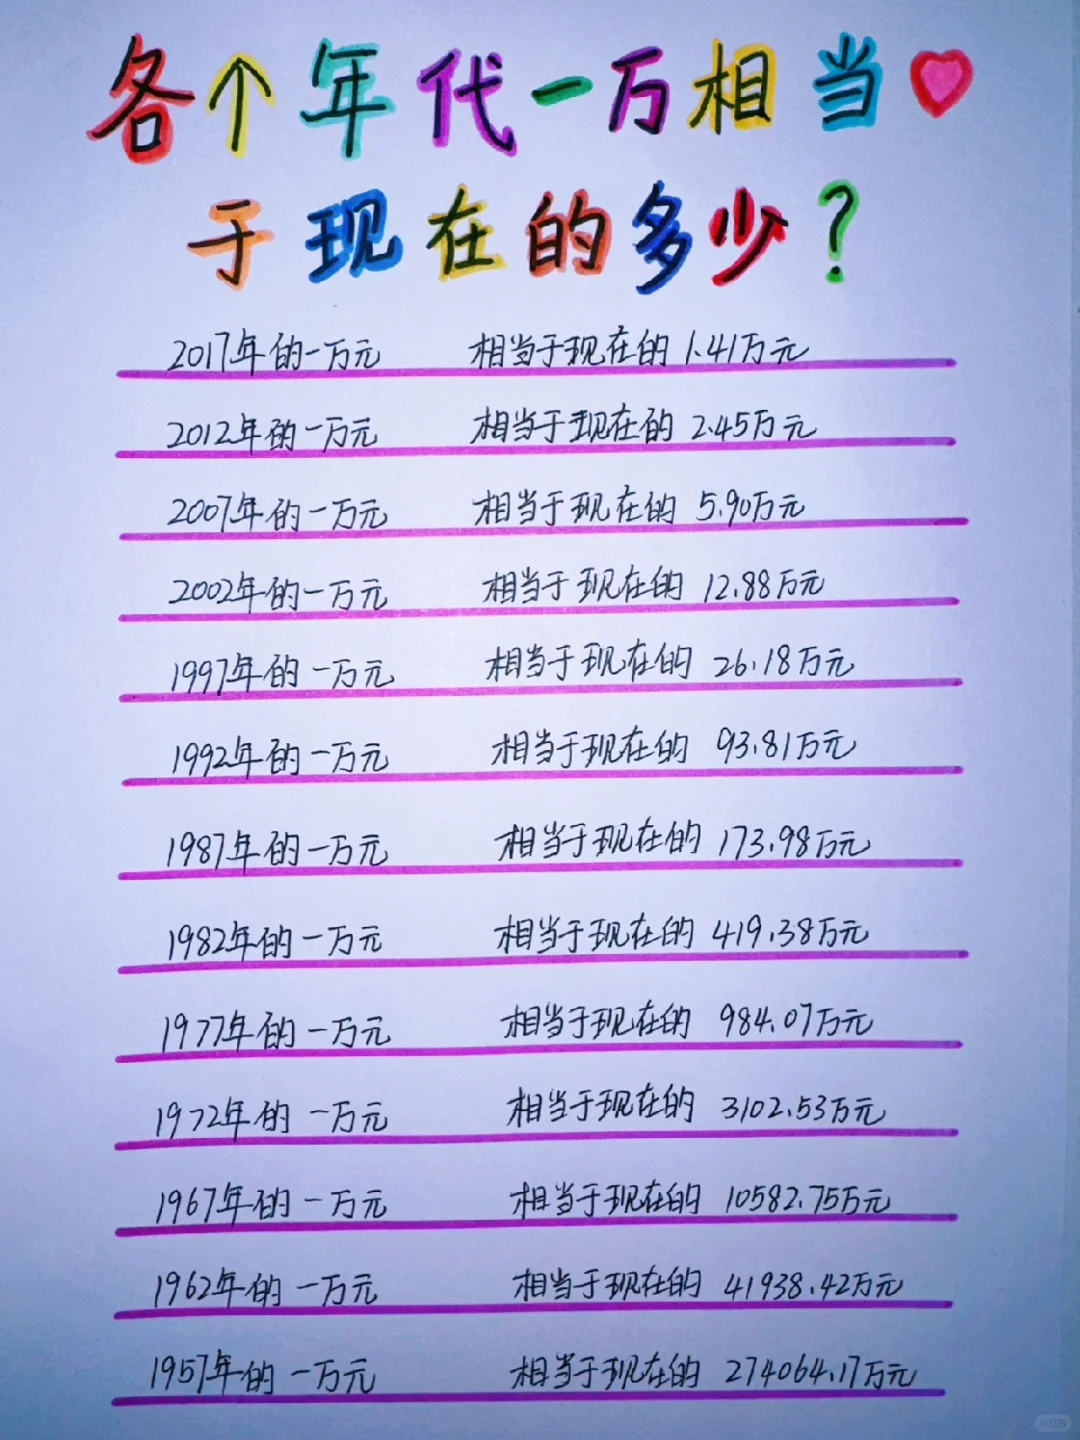 各个年代一万相当
于现在的多少?
2017年的一万元 相当于现在的 1.41万元
2012年的一万元 相当于现在的 2.45万元
2007年的一万元 相当于现在的 5.90万元
2002年的一万元 相当于现在的 12.88万元
1997年的一万元 相当于现在的 26.18万元
1992年的一万元 相当于现在的 93.81万元
1987年的一万元 相当于现在的 173.98万元
1982年的一万元 相当于现在的 419.38万元
1977年的一万元 相当于现在的 984.07万元
1972年的一万元 相当于现在的 3102.53万元
1967年的一万元 相当于现在的 10582.75万元
1962年的一万元 相当于现在的 41938.42万元
1957年的一万元 相当于现在的 274064.17万元
小红书